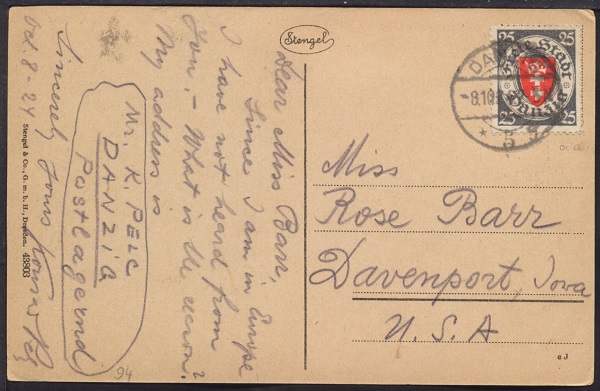 Stengel
Dear Miss Barr,
Since I am in Europe
I have not heard from
You. - What is the reason?
My address is
Mr. K. PELC
DANZIG
Postlagernd
Sincerely Yours
Oct. 8 - 24
Stengel & Co., G. m. b. H., Dresden. 43803
25 25
Freie Stadt
Danzig
25 25
8.10
5
Miss
Rose Barr
Davenport, Iowa
U.S.A
e J
94